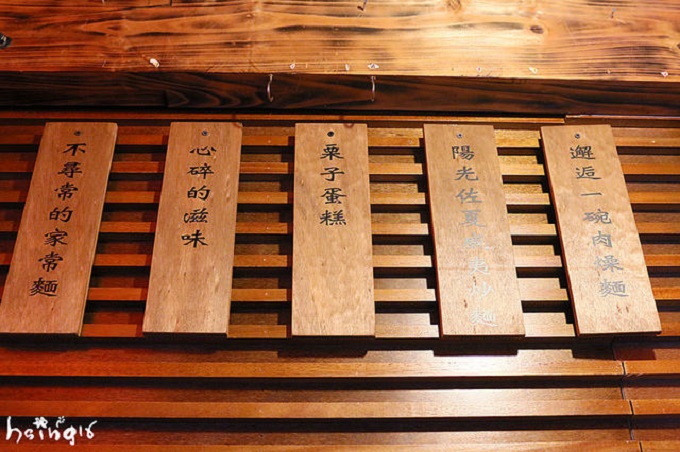 邂逅一碗肉燥麵
陽光佐夏威夷炒麵
栗子蛋糕
心碎的滋味
不尋常的家常麵